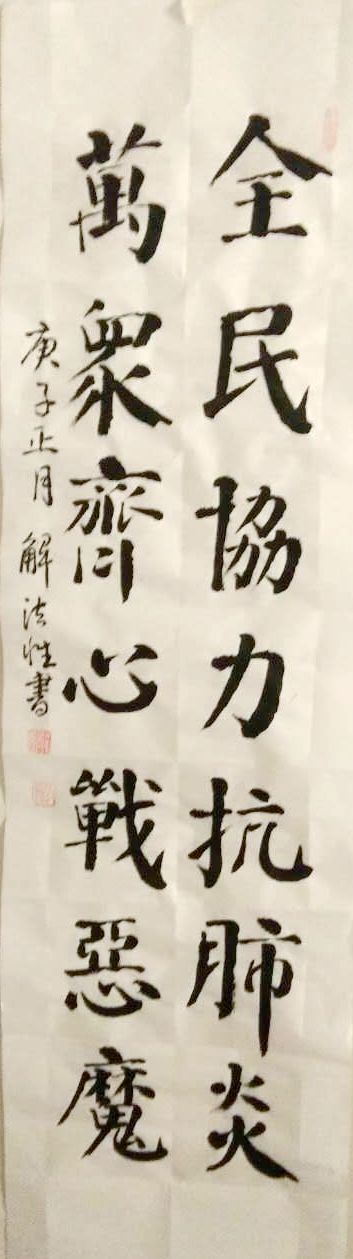 全民協力抗肺炎
萬眾齊心戰惡魔
庚子正月 解法性書